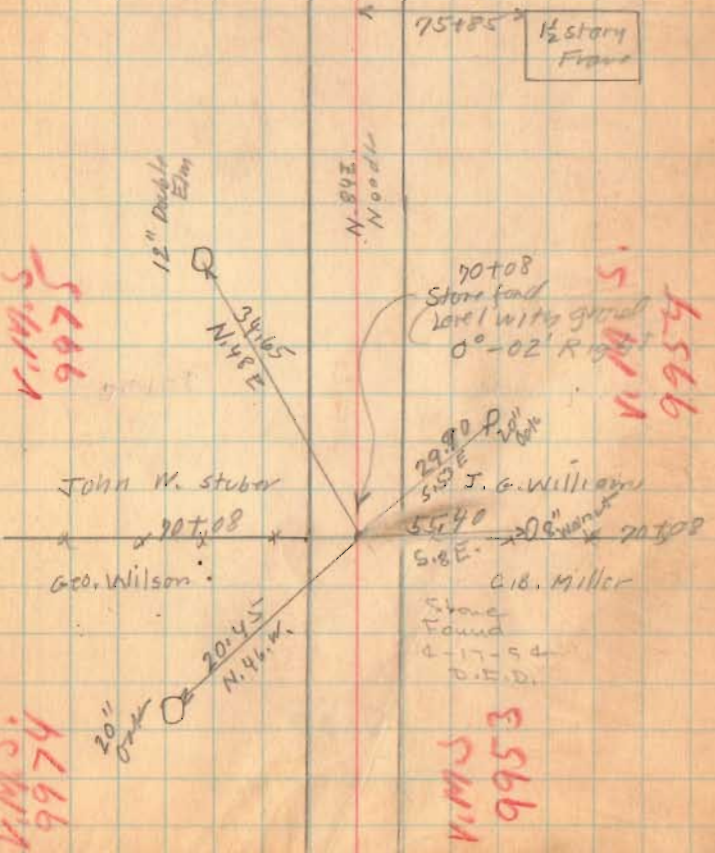 75+85
1½ story
Frame
12" Double
Elm
N. 84 E.
70+08
Stone found
Level with ground
0°-02' Right
V.M.S.
9975
V.M.S.
9954
34.65
N. 48 E
29.90
S. 53 E
20"
Oak
John W. Stuber
J. G. Williams
70+08
55.40
8" Walnut
70+08
S. 8 E.
Geo. Wilson
C.B. Miller
Stone
Found
4-17-54
D.E.D.
20.45
N. 46. W.
20"
V.M.S.
9974
V.M.S
9953